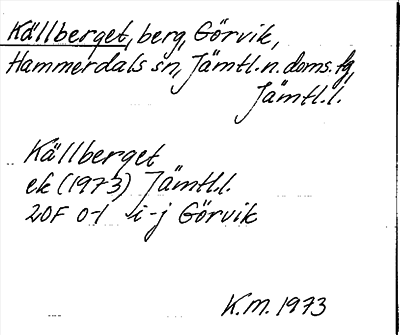 Källberget, berg, Görvik,
Hammerdals sn, Jämtl. n. doms. fg,
Jämtl. l.
Källberget
ek (1973) Jämtl. l.
20F 0-1 i-j Görvik
K.M. 1973